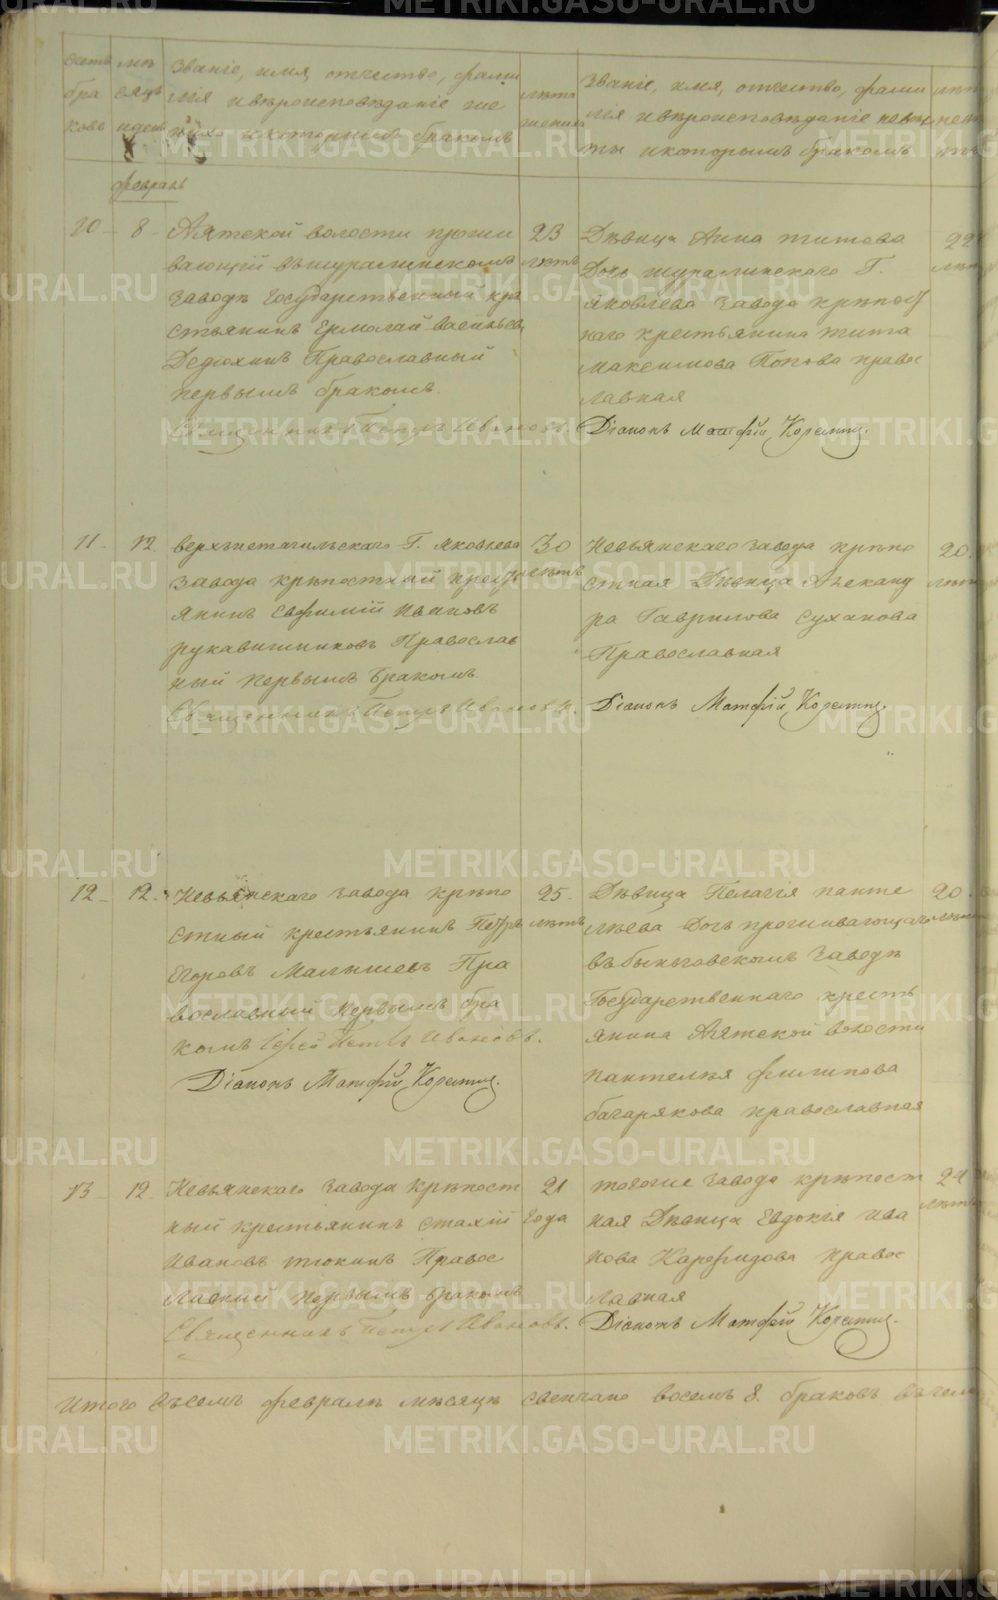 Счетъ бра ковъ
мѣ сяцъ идень
Званіе, имя, отчество, фами
лія ивѣроисповѣданіе же
ниха икоторымъ бракомъ
лѣта жениха
Званіе, имя, отчество, фами
лія ивѣроисповѣданіе невѣс
ты икоторымъ бракомъ
февраль
10 8 Аятской волости прожи
вающій въ шуралинскомъ
заводѣ Государственный кре
стьянинъ Ермолай васильевъ
Дефохинъ Православный
первымъ бракомъ.
23 лѣтъ
Дѣвица Анна титова
Дочь шуралинскаго Г.
Яковлева завода крѣпост
наго крестьянина тита
максимова Попова правос
лавная
22 лѣт
Священникъ Петръ Ивановъ. Діаконъ Матфій Корелинъ.
11 12 верхънетагильскаго Г. Яковлева
завода крѣпостной крест
янинъ Евфимій Ивановъ
рукавишниковъ Православ
ный первымъ бракомъ.
30 лѣтъ
Невьянскаго завода крѣпо
стная Дѣвица Александ
ра Гаврилова Суханова
Православная
20 лѣт
Священникъ Петръ Ивановъ. Діаконъ Матфій Корелинъ.
12 12 Невьянскаго завода крѣпо
стный крестьянинъ Петръ
Егоровъ Малышевъ Пра
вославный первымъ бра
комъ Іерей Петръ Ивановъ.
Діаконъ Матфій Корелинъ.
25 лѣтъ
Дѣвица Пелагія панте
лѣева Дочь проживающаго
въ быньговскомъ заводѣ
Государственнаго кресть
янина Аятской волости
пантелѣя филипова
багарякова православная
20 лѣт
13 12 Невьянскаго завода крѣпост
ный крестьянинъ
Ивановъ тюкинъ Правос
лавный первымъ бракомъ
21 года
тогоже завода крѣпост
ная Дѣвица Евдокія ива
нова Карфидова правос
лавная
24 лѣт
Священникъ Петръ Ивановъ. Діаконъ Матфій Корелинъ.
Итого въсемъ февралѣ мѣсяцѣ свенчано восемъ 8. браковъ
METRIKI.GASO-URAL.RU